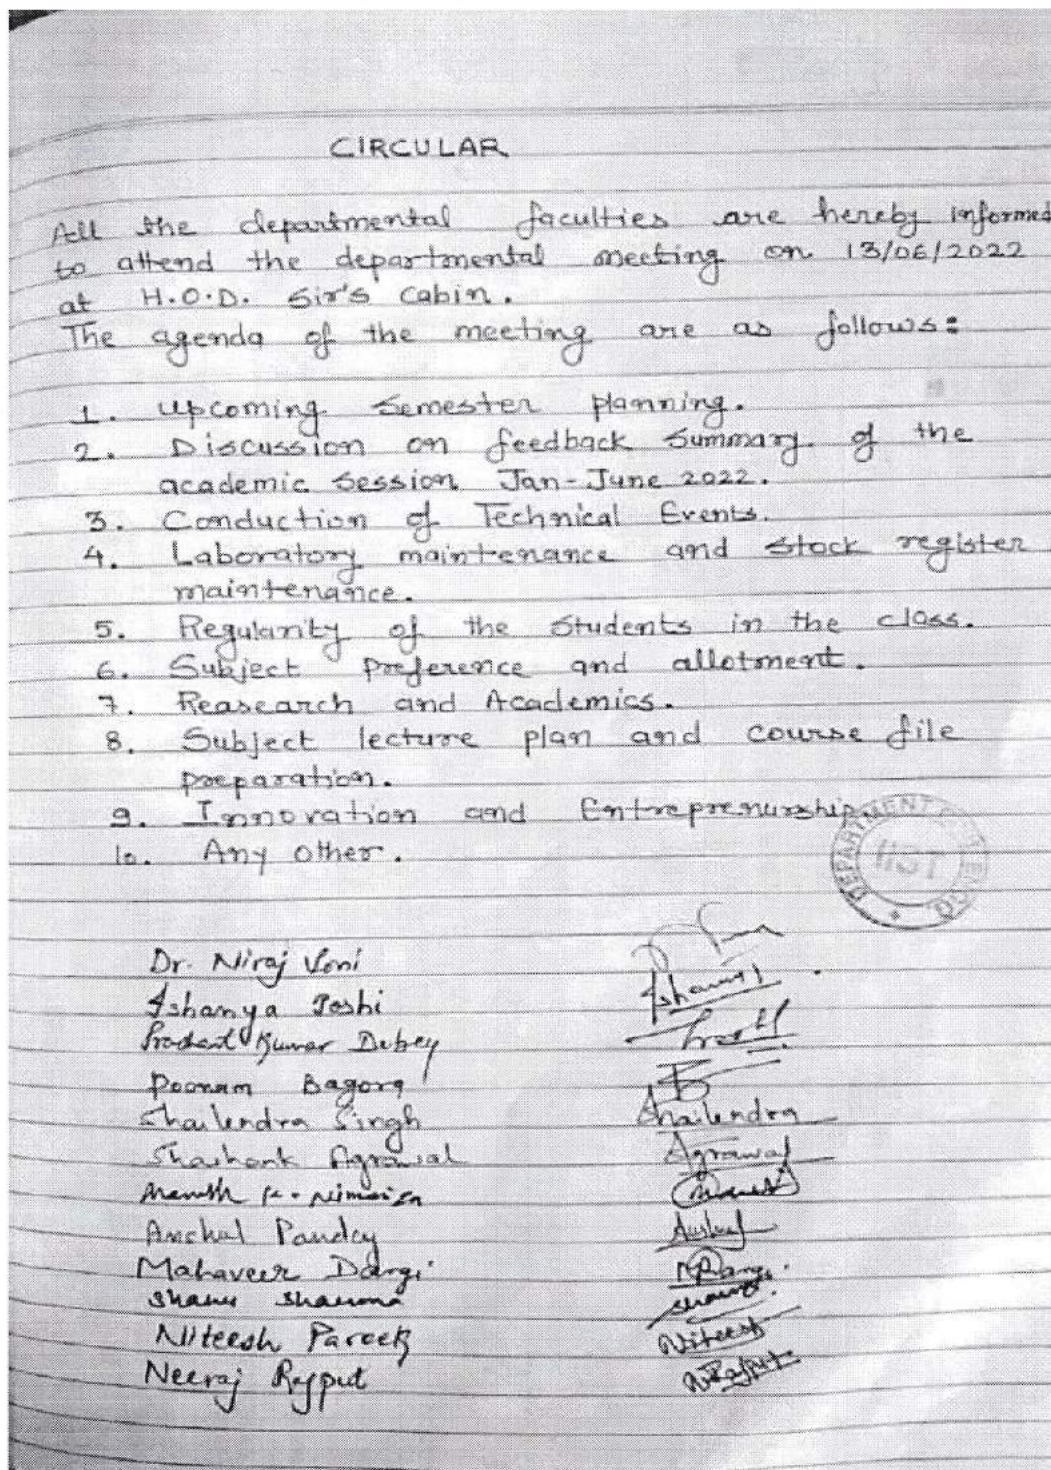 CIRCULAR
All the departmental faculties are hereby informed
to attend the departmental meeting on 13/06/2022
at H.O.D. Sir's Cabin.
The agenda of the meeting are as follows:
1. Upcoming Semester planning.
2. Discussion on feedback Summary of the
academic Session Jan-June 2022.
3. Conduction of Technical Events.
4. Laboratory maintenance and stock register
maintenance.
5. Regularity of the Students in the class.
6. Subject preference and allotment.
7. Reasearch and Academics.
8. Subject lecture plan and course file
preparation.
9. Innovation and Entreprenurship.
10. Any other.
DEPARTMENT
IIST
Dr. Niraj Soni
Ishanya Joshi
Prashant Kumar Dubey
Poonam Bagora
Shailendra Singh Shailendra
Shashank Agrawal Agrawal
Anchal Pandey
Mahaveer Dangi
Shanu Sharma
Niteesh Pareek Niteesh
Neeraj Rajput